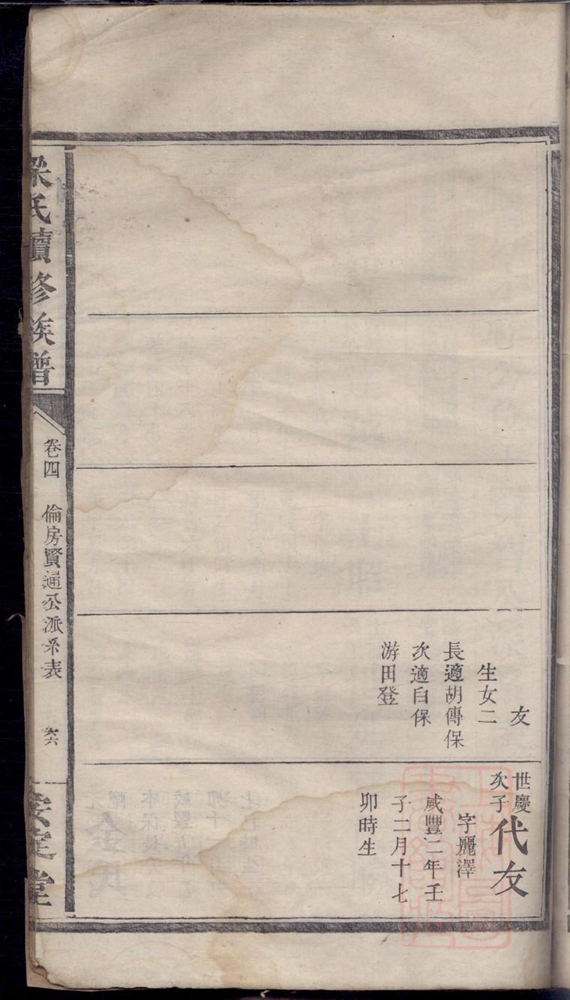 友
生女二
長適胡傳保
次適白保
游田登
世慶
次子
代友
字麗澤
咸豐二年壬
子二月十七
卯時生
梁氏續修族譜
卷四
倫房賢通公派系表
安定堂